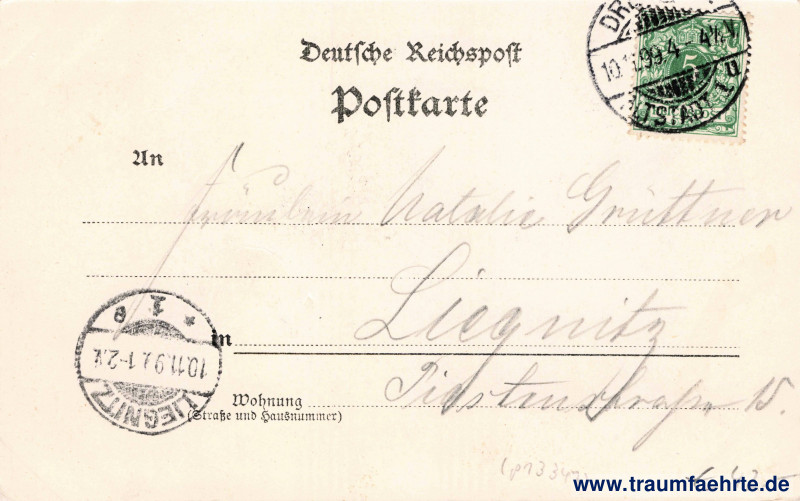 Deutsche Reichspost
Postkarte
An
Fräulein Natalie Grüttner
Liegnitz
in
Wohnung
(Straße und Hausnummer)
Piastenstraße 15.
10.11.99.4
ALTSTADT
* 1 e
10.11.9
1-2.V.
LIEGNITZ
www.traumfaehrte.de